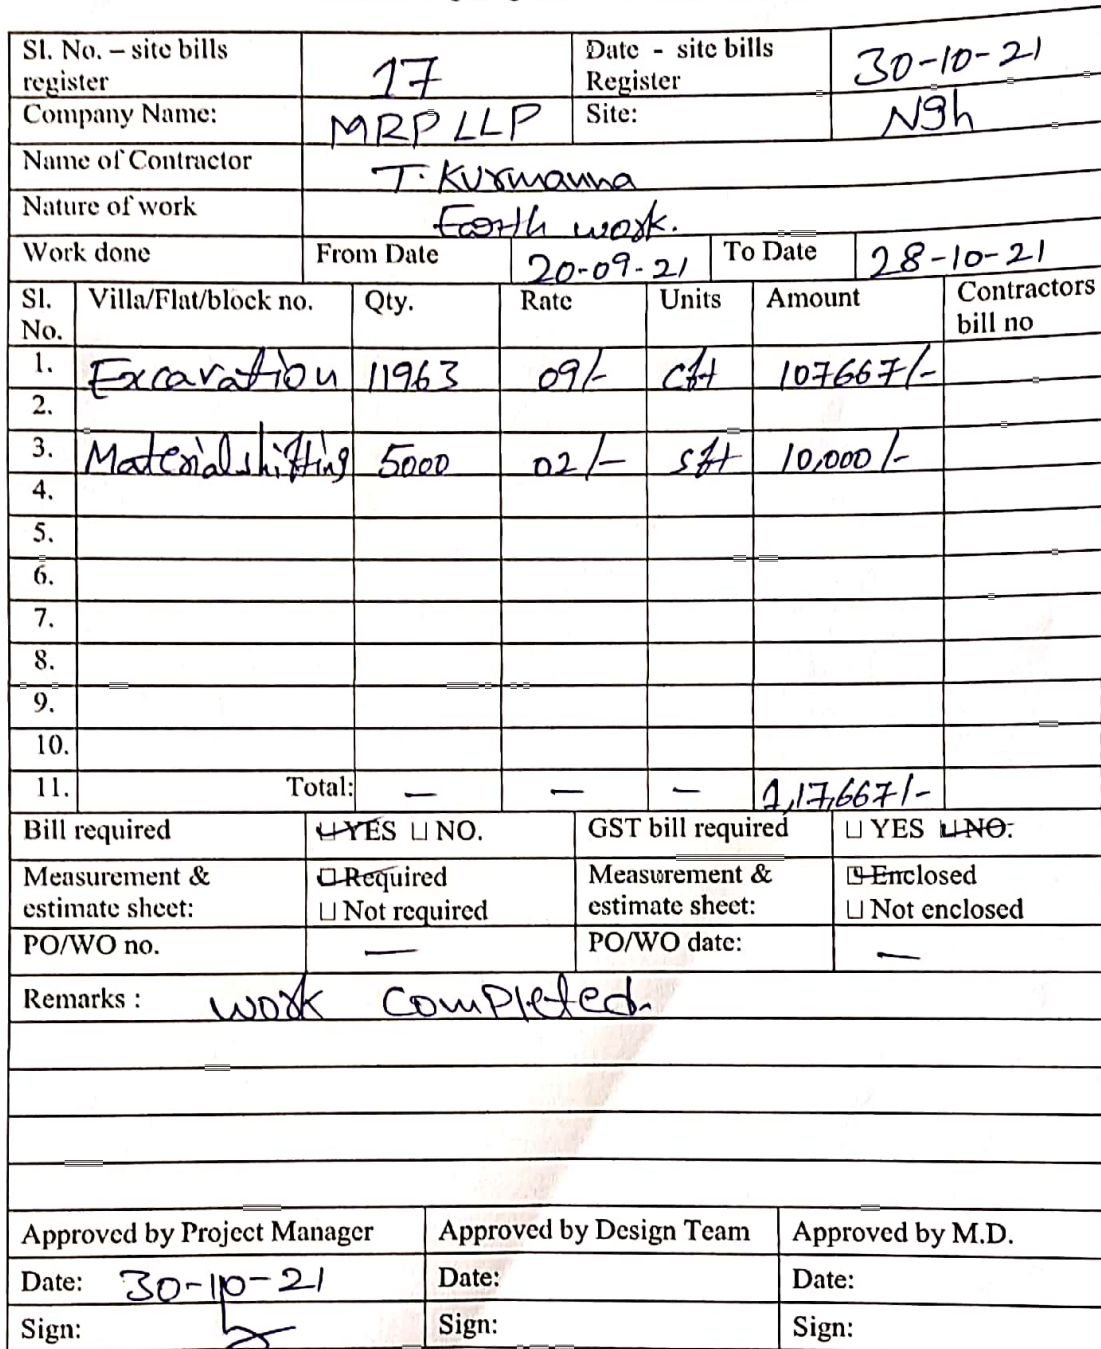 Sl. No. – site bills register 17 Date - site bills Register 30-10-21
Company Name: MRP LLP Site: Ngh
Name of Contractor T. Kurmanna
Nature of work Earth work.
Work done From Date 20-09-21 To Date 28-10-21
Sl. No. Villa/Flat/block no. Qty. Rate Units Amount Contractors bill no
1. Excavation 11963 09/- cft 107667/-
2.
3. Material shifting 5000 02/- sft 10,000/-
4.
5.
6.
7.
8.
9.
10.
11. Total: — — — 1,17,667/-
Bill required ☐ YES ☐ NO. GST bill required ☐ YES ☐ NO.
Measurement & estimate sheet: ☐ Required ☐ Not required Measurement & estimate sheet: ☐ Enclosed ☐ Not enclosed
PO/WO no. — PO/WO date: —
Remarks : work completed.
Approved by Project Manager Approved by Design Team Approved by M.D.
Date: 30-10-21 Date: Date:
Sign: Sign: Sign: